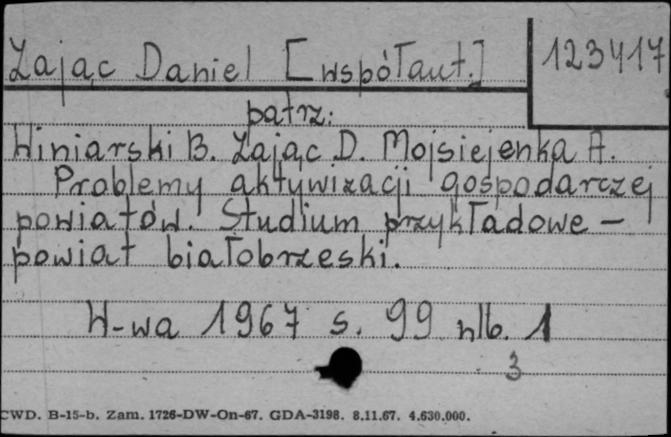 Zając Daniel [współaut.]
123417
patrz:
Winiarski B. Zając D. Mojsiejenka A.
Problemy aktywizacji gospodarczej
powiatów. Studium przykładowe –
powiat białobrzeski.
W-wa 1967 s. 99 nlb. 1
3
CWD. B-15-b. Zam. 1726-DW-On-67. GDA-3198. 8.11.67. 4.630.000.